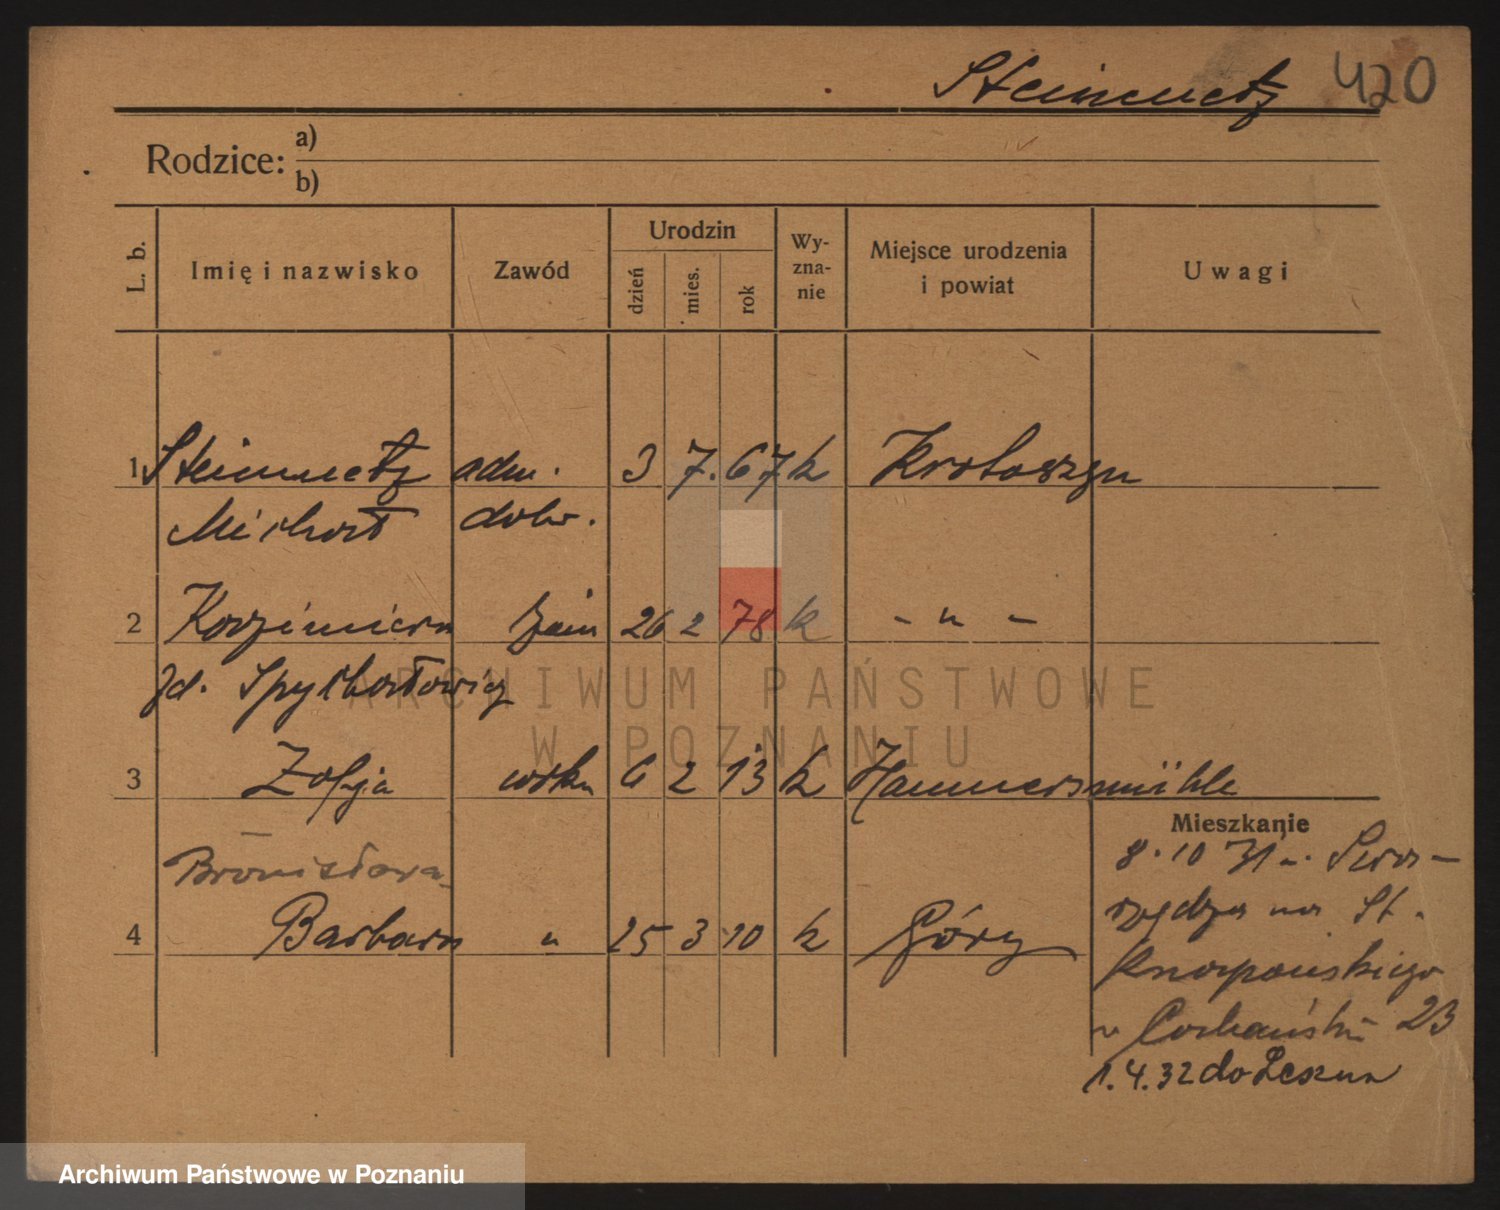 Steinmetz 420
Rodzice: a)
b)
L. b. Imię i nazwisko Zawód Urodzin dzień mies. rok Wy-zna-nie Miejsce urodzenia i powiat Uwagi
1 Steinmetz adm. 3 7. 67 k Krotoszyn
Michał dobr.
2 Kazimiera żona 26 2 78 k - " -
zd. Spychałowicz
ARCHIWUM PAŃSTWOWE
W POZNANIU
3 Zofja córka 6 2 13 k Hammersmühle
Mieszkanie
Bronisława
8. 10 31 u.
4 Barbara " 25 3 10 k Góry
na St.
23
1.4.32 do Leszna
Archiwum Państwowe w Poznaniu